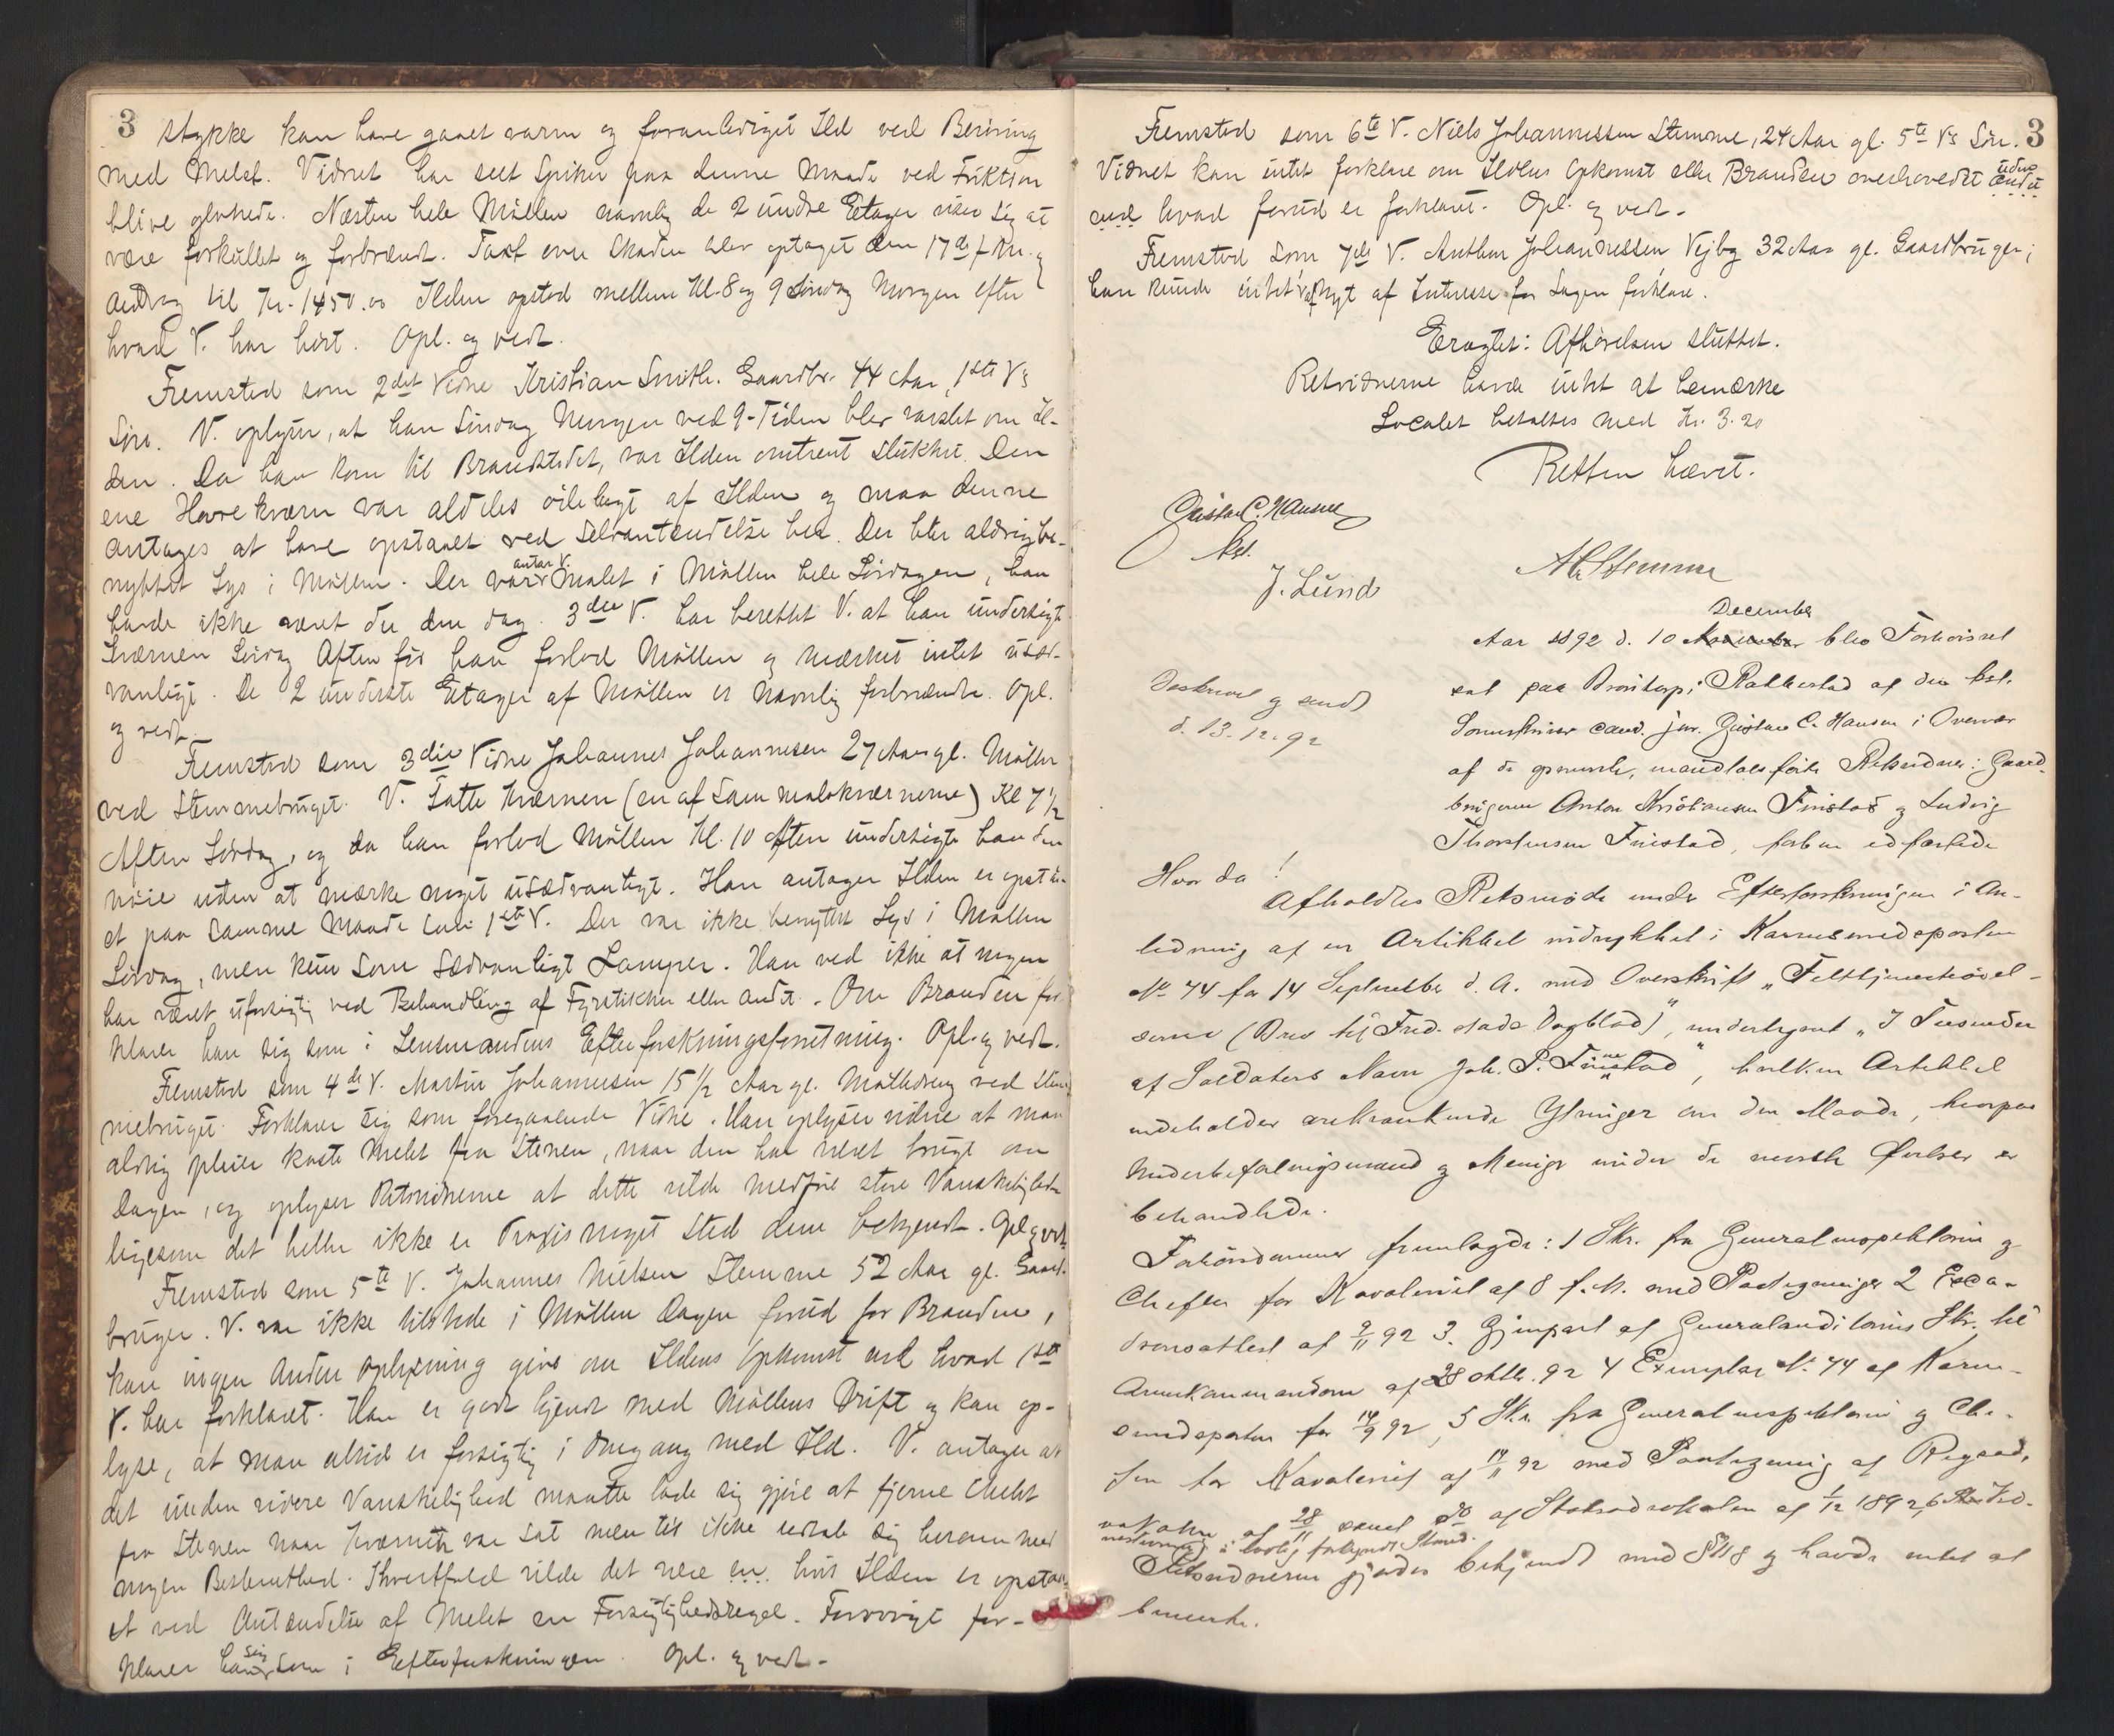 3
stykke kan have gaaet varm og foranlediget Ild ved Berøring
med Melet. Vidnet har seet Spiker paa denne Maade ved Friktion
blive glohede. Næsten hele Møllen navnlig de 2 undre Etager viser sig at
være forkullet og forbrændt. Taxt over Skaden blev optaget den 17de f. M. og
androg til Kr. 1450.00 Ilden opstod mellem Kl. 8 og 9 Søndag Morgen efter
hvad V. har hørt. Opl. og vedt.
Fremstod som 2det Vidne Kristian Smith. Gaardbr. 44 Aar, 1ste V's
Søn. V. oplyser, at han Søndag Morgen ved 9-Tiden blev varslet om Il-
den. Da han kom til Brandstedet, var Ilden omtrent slukket. Den
ene Havrekværn var aldeles ødelagt af Ilden og maa denne
antages at have opstaaet ved Selvantændelse her. Der blev aldrig be-
nyttet Lys i Møllen. Der var antar V. malet i Møllen hele Lørdagen, han
havde ikke været der den dag. 3die V. har berettet V. at han undersøgte
Kværnen Lørdag Aften før han forlod Møllen og mærket intet usæd-
vanligt. De 2 underste Etager af Møllen er navnlig forbrændte. Opl.
og vedt.
Fremstod som 3die Vidne Johannes Johannesen 27 Aar gl. Møller
ved Stemmebruget. V. satte Kværnen (en af Sammalekværnerne) Kl 7 1/2
Aften Lørdag, og da han forlod Møllen Kl. 10 Aften undersøgte han den
nøie uden at mærke noget usædvanligt. Han antager Ilden er opstaa-
et paa samme Maade som 1ste V. Der var ikke benyttet Lys i Møllen
Lørdag, men kun som sædvanligt Lamper. Han ved ikke at nogen
har været uforsigtig ved Behandling af Fyrstikker eller andet. Om Branden for-
klarer han sig som i Lensmandens Efterforskningsforretning. Opl. og vedt.
Fremstod som 4de V. Martin Johannesen 15 1/2 Aar gl. Mølledreng ved Stem-
mebruget. Forklarer sig som foregaaende Vidne. Han oplyser videre at man
aldrig pleier koste Melet fra Stenen, naar den har været brugt om
Dagen, og oplyser Retsvidnerne at dette vilde medføre store Vanskeligheder
ligesom det heller ikke er Praxis noget Sted dem bekjendt. Opl. og vedt.
Fremstod som 5te V. Johannes Nielsen Stemme 52 Aar gl. Gaard-
bruger. V. var ikke tilstede i Møllen Dagen forud for Branden,
kan ingen anden Oplysning give om Ildens Opkomst end hvad 1ste
V. har forklaret. Han er godt kjendt med Møllens Drift og kan op-
lyse, at man altid er forsigtig i Omgang med Ild. V. antager at
det uden videre Vanskelighed maatte lade sig gjøre at fjerne Melet
fra Stenen naar Kværnen var sat men tør ikke udtale sig herom med
nogen Bestemthed. Ihvertfald vilde det være en hvis Ilden er opstaa-
et ved Antændelse af Melet en Forsigtighedsregel. Forøvrigt for-
klarer han sig som i Efterforskningen. Opl. og vedt.
3
Fremstod som 6te V. Niels Johannessen Stemme, 24 Aar gl. 5te V's Søn.
Vidnet kan intet forklare om Ildens Opkomst eller Branden overhovedet uden andet
end hvad forud er forklaret. Opl. og vedt.
Fremstod som 7de V. Anthon Johannessen Vejby 32 Aar gl. Gaardbruger;
han kunde intet nyt af Interesse for Sagen forklare.
Eragtet: Afhørelsen sluttet.
Retsvidnerne havde intet at bemærke
Localet betaltes med Kr. 3.20
Retten hævet.
Gustav C. Hansen
kst.
J. Lund
Stemme
December
Aar 1892 d. 10 November blev Forhørsret
sat paa i Rakkestad af den kst.
Sorenskriver cand. jur. Gustav C. Hansen i Overvær
af de opnævnte, mandtalsførte Retsvidner: Gaard-
brugerne Anton Kristiansen Finstad og Ludvig
Thorstensen Finstad, forhen edfæstede
Beskrevet og sendt
d. 13.12.92
Hvor da!
Afholdtes Retsmøde under Efterforskningen i An-
ledning af en Artikkel indrykket i Kornsmedsposten
No 74 for 14 September d. A. med Overskrift „Felttjenesteøvel-
serne (Brev til Fred.stads Dagblad)", undertegnet „I Tusender
af Soldaters Navn Joh. P. Finnestad", hvilken Artikkel
indeholder ærekrænkende Ytringer om den Maade, hvorpaa
Underbefalingsmænd og Menige under de øvelser er
behandlede.
Forhørsdommer fremlagde: 1 Skr. fra Generalinspektøren og
Chefen for Kavaleriet af 8 f. M. med Paategninger 2 Esca-
dronsattest af 9/11 92 3. Gjenpart af Generalauditørens Skr. til
Armekommandoen af 28 Oktb. 92 4 Exemplar No 74 af Korn-
smedsposten for 14/9 92, 5 Skr. fra Generalinspektøren og Che-
fen for Kavaleriet af 14/11 92 med Paategning af Regjeringsad-
vokaten af 28/11 samt do af Statsadvokaten af 1/12 1892, 6
i lovlig forkyndt Stand.
Retsvidnerne gjordes bekjendt med Sag og havde intet at
bemærke.